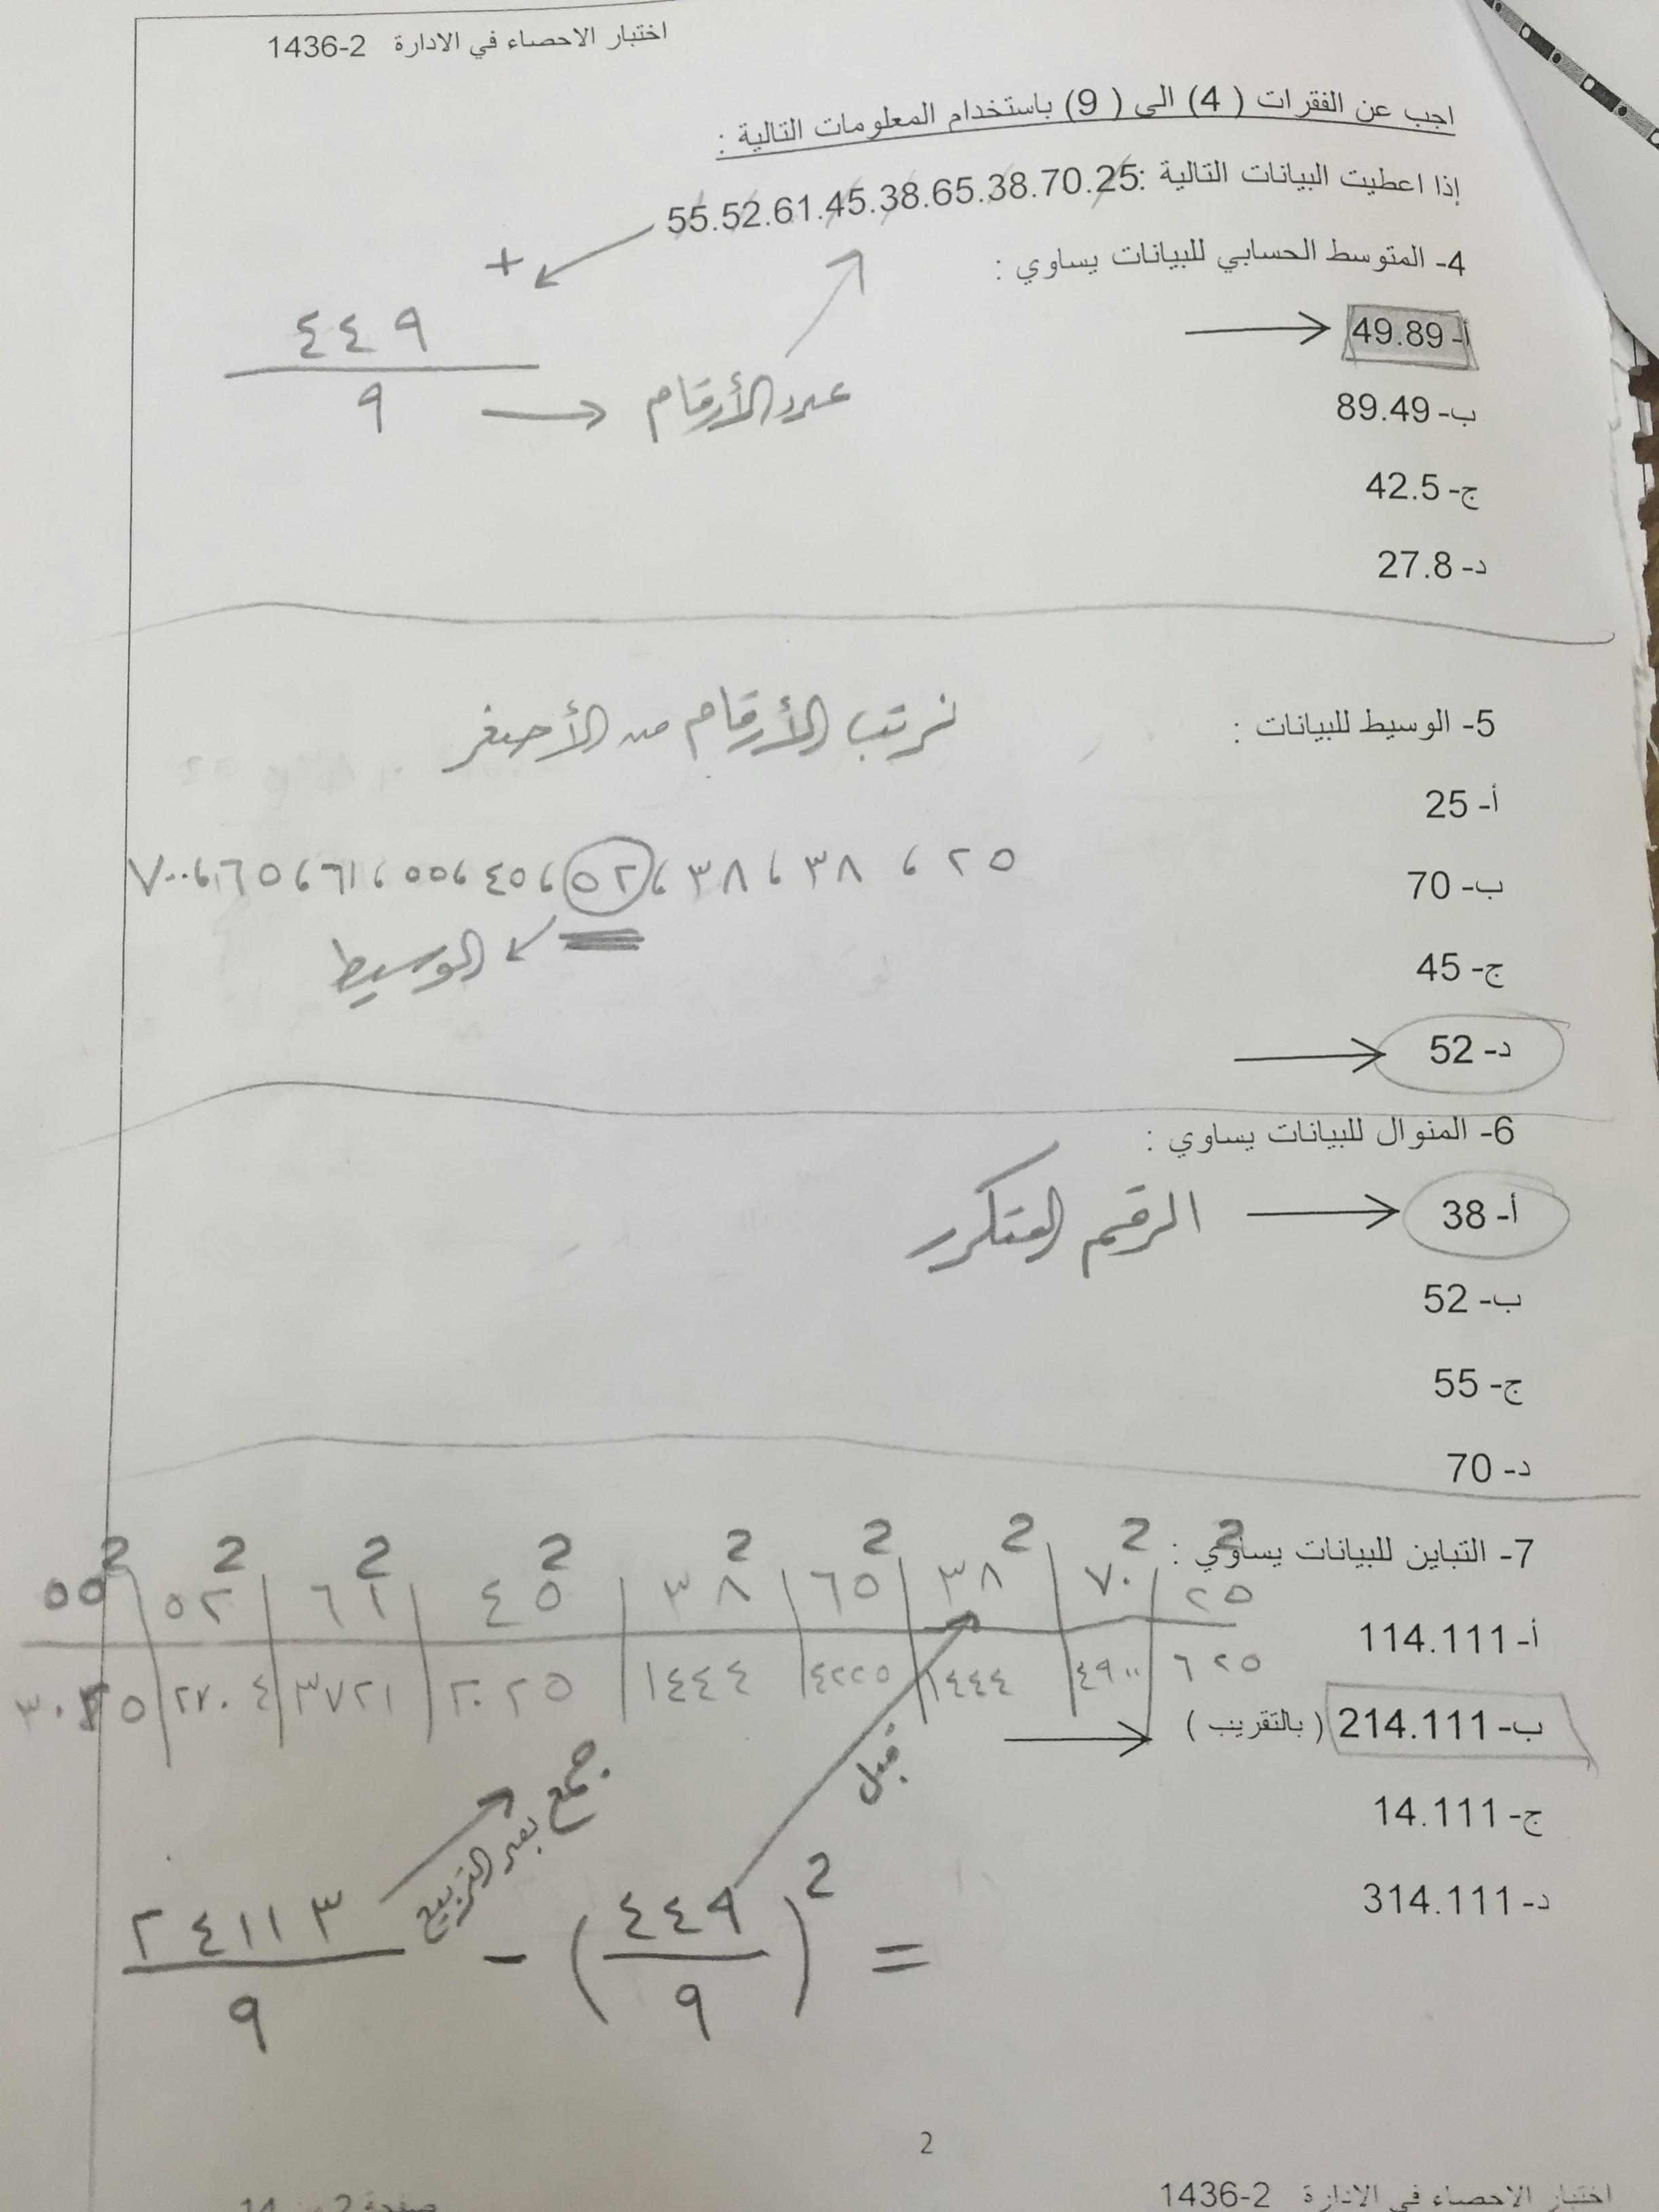 اختبار الاحصاء في الادارة 2-1436
اجب عن الفقرات ( 4) الى ( 9) باستخدام المعلومات التالية :
إذا اعطيت البيانات التالية :55.52.61.45.38.65.38.70.25
4- المتوسط الحسابي للبيانات يساوي :
+
أ- 49.89
٤٤٩
٩
عدد الأرقام
ب- 89.49
ج- 42.5
د- 27.8
5- الوسيط للبيانات :
نرتب الأرقام من الأصغر
أ- 25
ب- 70
٢٥ ، ٣٨ ، ٣٨ ، ٥٢ ، ٤٥ ، ٥٥ ، ٦١ ، ٦٥ ، ٧٠
ج- 45
الوسيط
د- 52
6- المنوال للبيانات يساوي :
أ- 38
الرقم المتكرر
ب- 52
ج- 55
د- 70
7- التباين للبيانات يساوي :
٥٥2 ٥٢2 ٦١2 ٤٥2 ٣٨2 ٦٥2 ٣٨2 ٧٠2 ٢٥2
أ- 114.111
٣٠٢٥ ٢٧٠٤ ٣٧٢١ ٢٠٢٥ ١٤٤٤ ٤٢٢٥ ١٤٤٤ ٤٩٠٠ ٦٢٥
ب- 214.111 ( بالتقريب )
قبل
جمع بعد التربيع
ج- 14.111
د- 314.111
٢٤١١٣
٩
- (٤٤٩
٩)2 =
2
اختبار الاحصاء في الادارة 2-1436